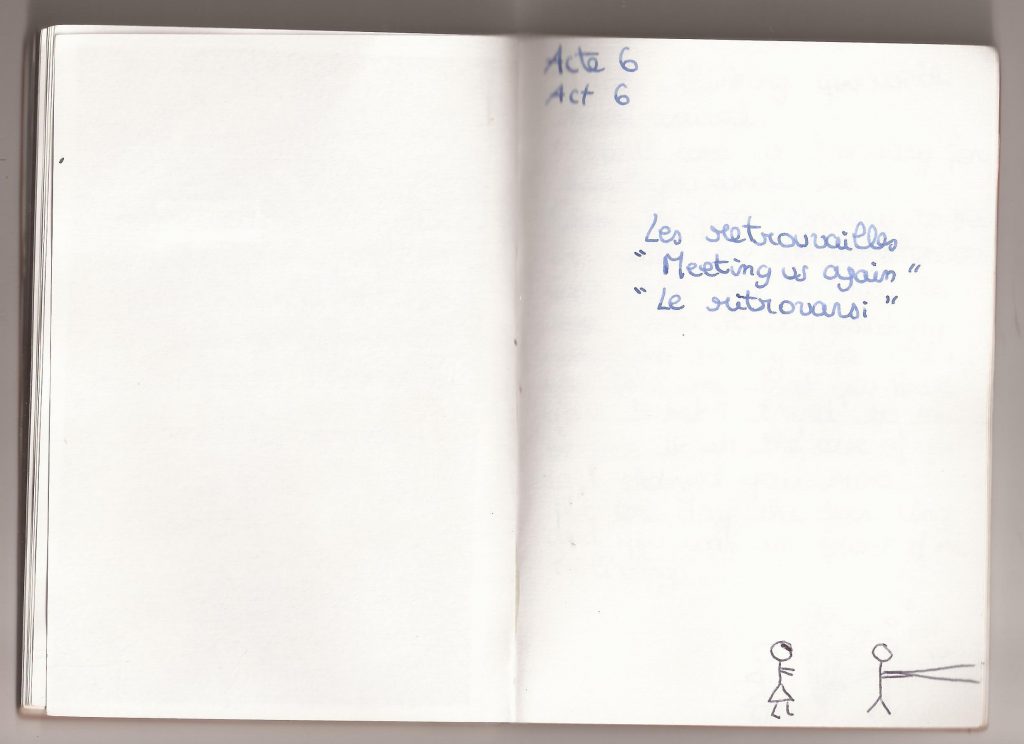 Acte 6
Act 6
Les retrouvailles
"Meeting us again"
"Le ritrovarsi"